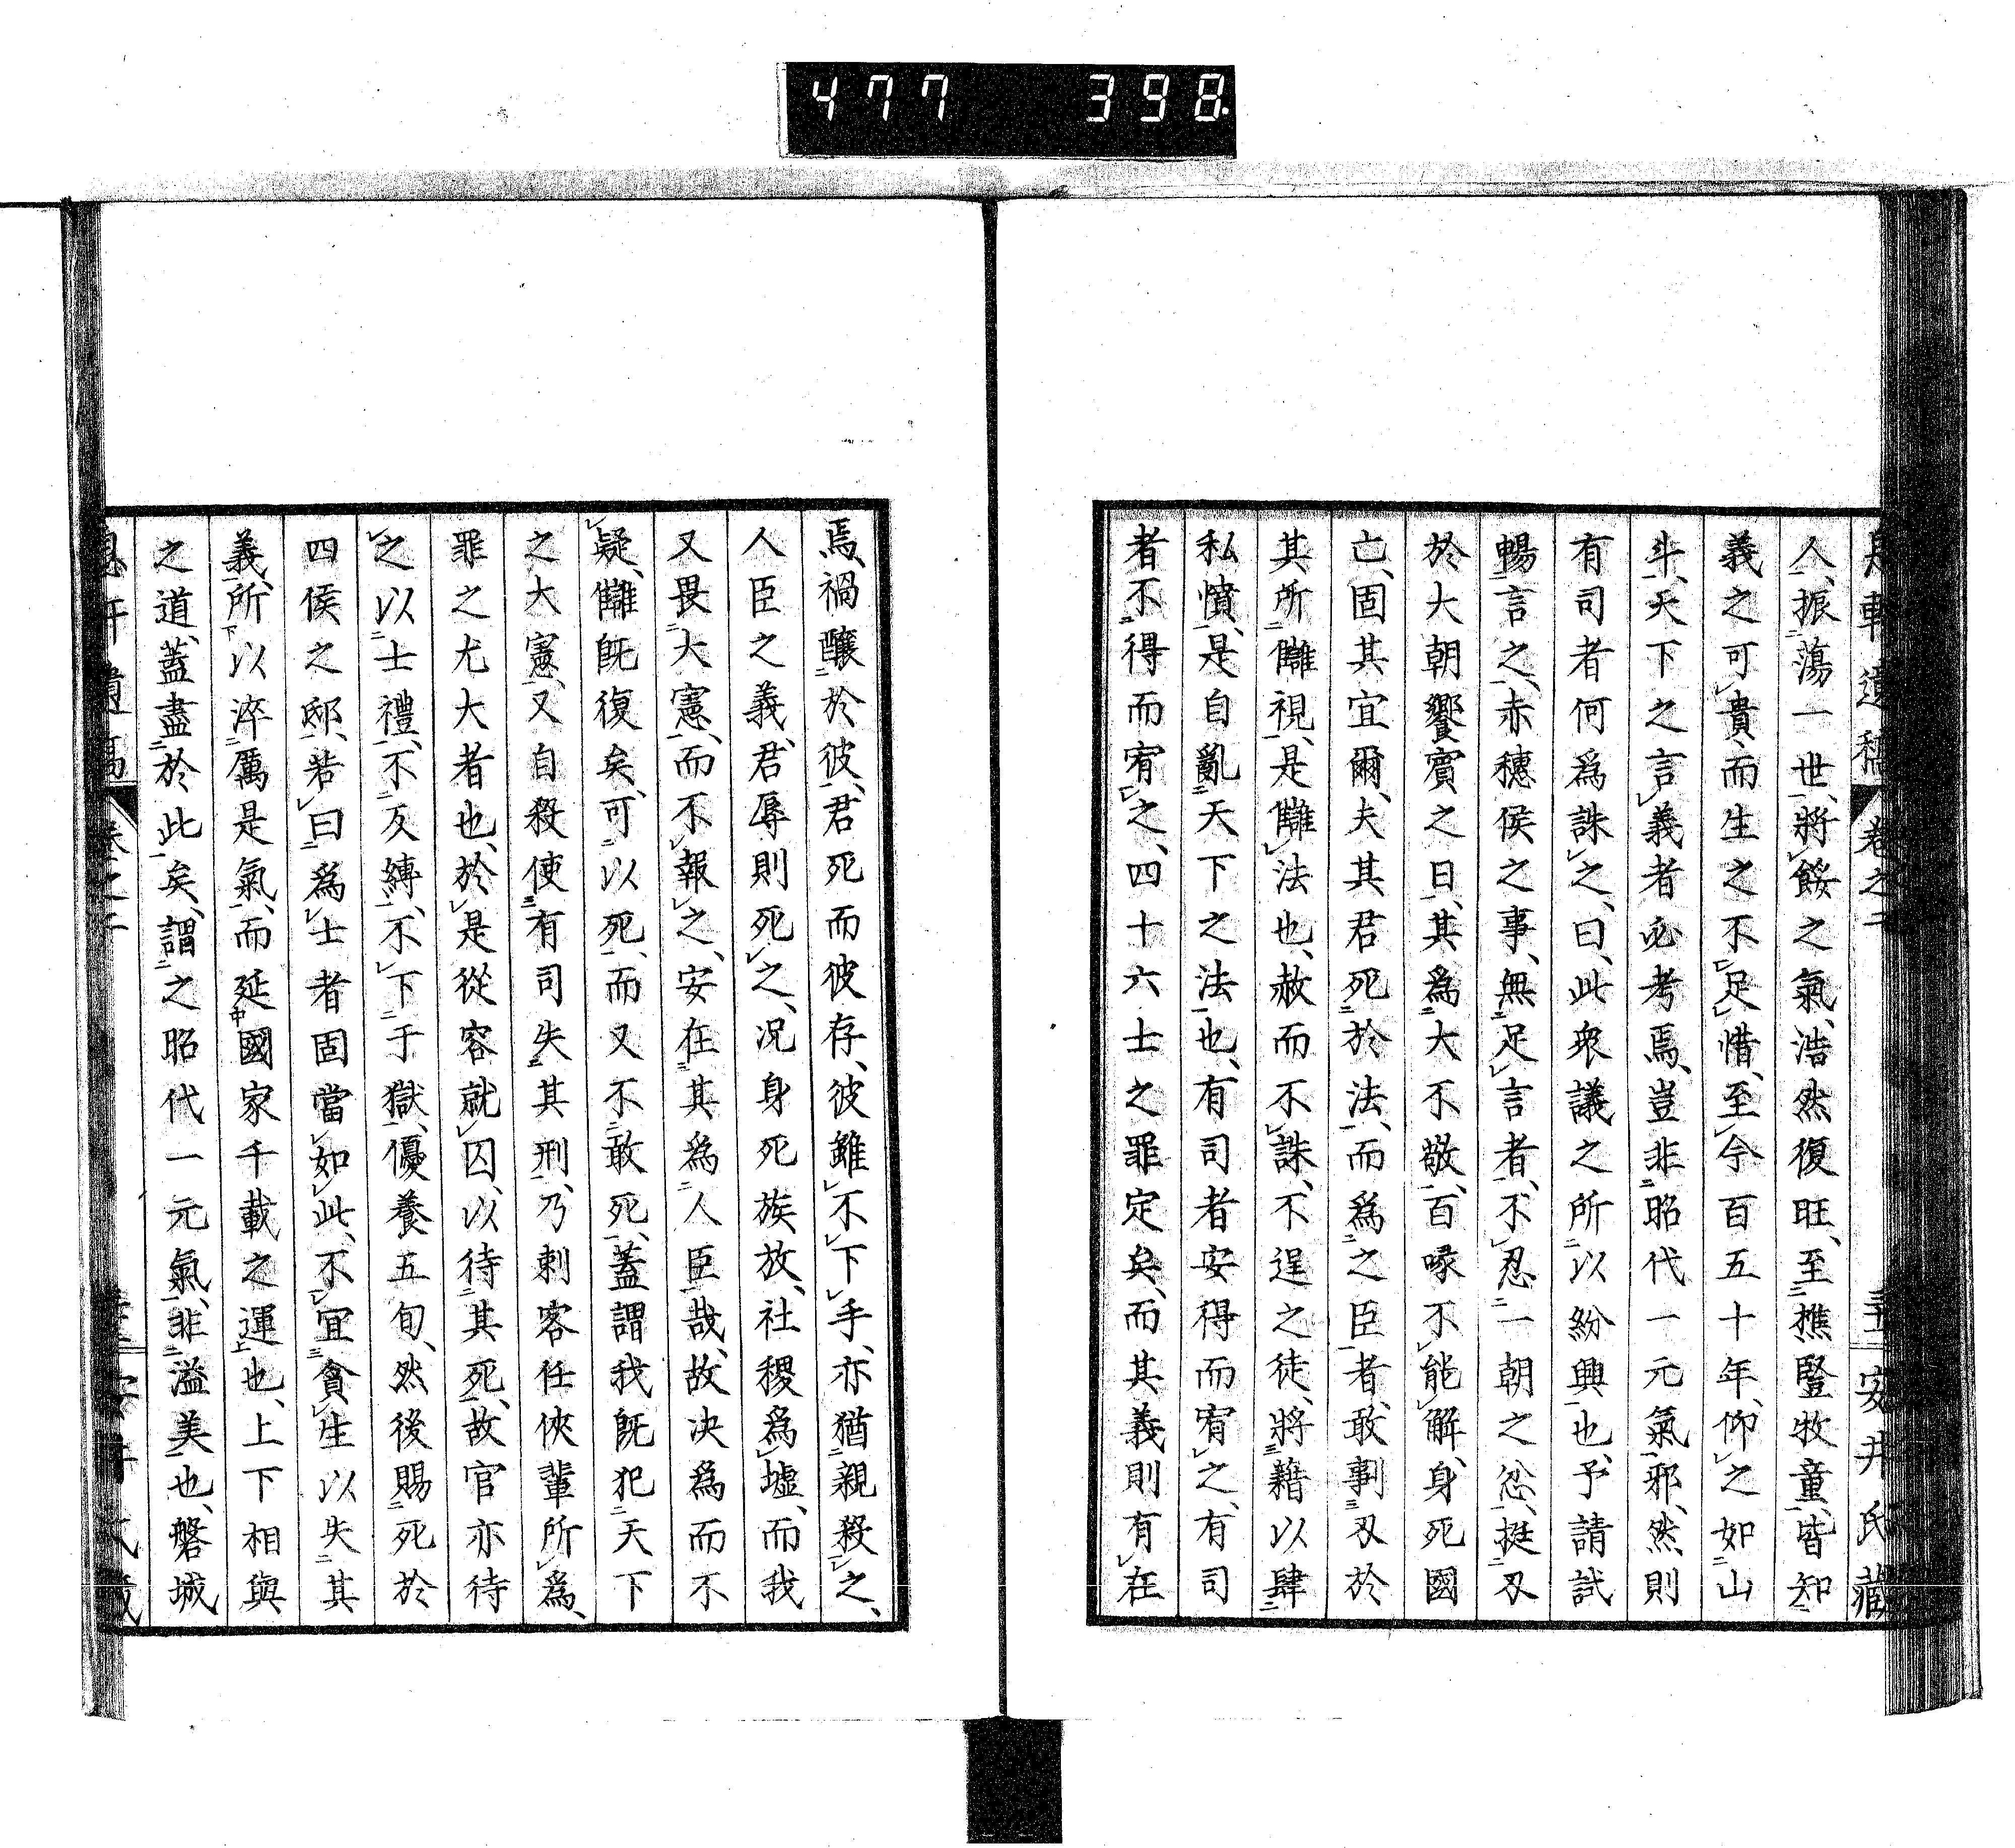 477 398
息軒遺稿 卷之二 安井氏藏
人、振蕩一世、將餒之氣、浩然復旺、至樵豎牧童、皆知
義之可貴、而生之不足惜、至今百五十年、仰之如山
斗、天下之言義者必考焉、豈非昭代一元氣邪、然則
有司者何爲誅之、曰、此衆議之所以紛興也、予請試
暢言之、赤穗侯之事、無足言者、不忍一朝之忿、挺刄
於大朝饗賓之日、其爲大不敬、百喙不能解、身死國
亡、固其宜爾、夫其君死於法、而爲之臣者、敢剚刄於
其所讎視、是讎法也、赦而不誅、不逞之徒、將藉以肆
私憤、是自亂天下之法也、有司者安得而宥之、有司
者不得而宥之、四十六士之罪定矣、而其義則有在
焉、禍釀於彼、君死而彼存、彼雖不下手、亦猶親殺之、
人臣之義、君辱則死之、況身死族放、社稷爲墟、而我
又畏大憲、而不報之、安在其爲人臣哉、故決爲而不
疑、讎既復矣、可以死、而又不敢死、蓋謂我既犯天下
之大憲、又自殺使有司失其刑、乃刺客任俠輩所爲、
罪之尤大者也、於是從容就囚、以待其死、故官亦待
之以士禮、不反縛、不下于獄、優養五旬、然後賜死於
四侯之邸、若曰爲士者固當如此、不宜貪生以失其
義、所以淬厲是氣、而延國家千載之運也、上下相與
之道、蓋盡於此矣、謂之昭代一元氣、非溢美也、磐城